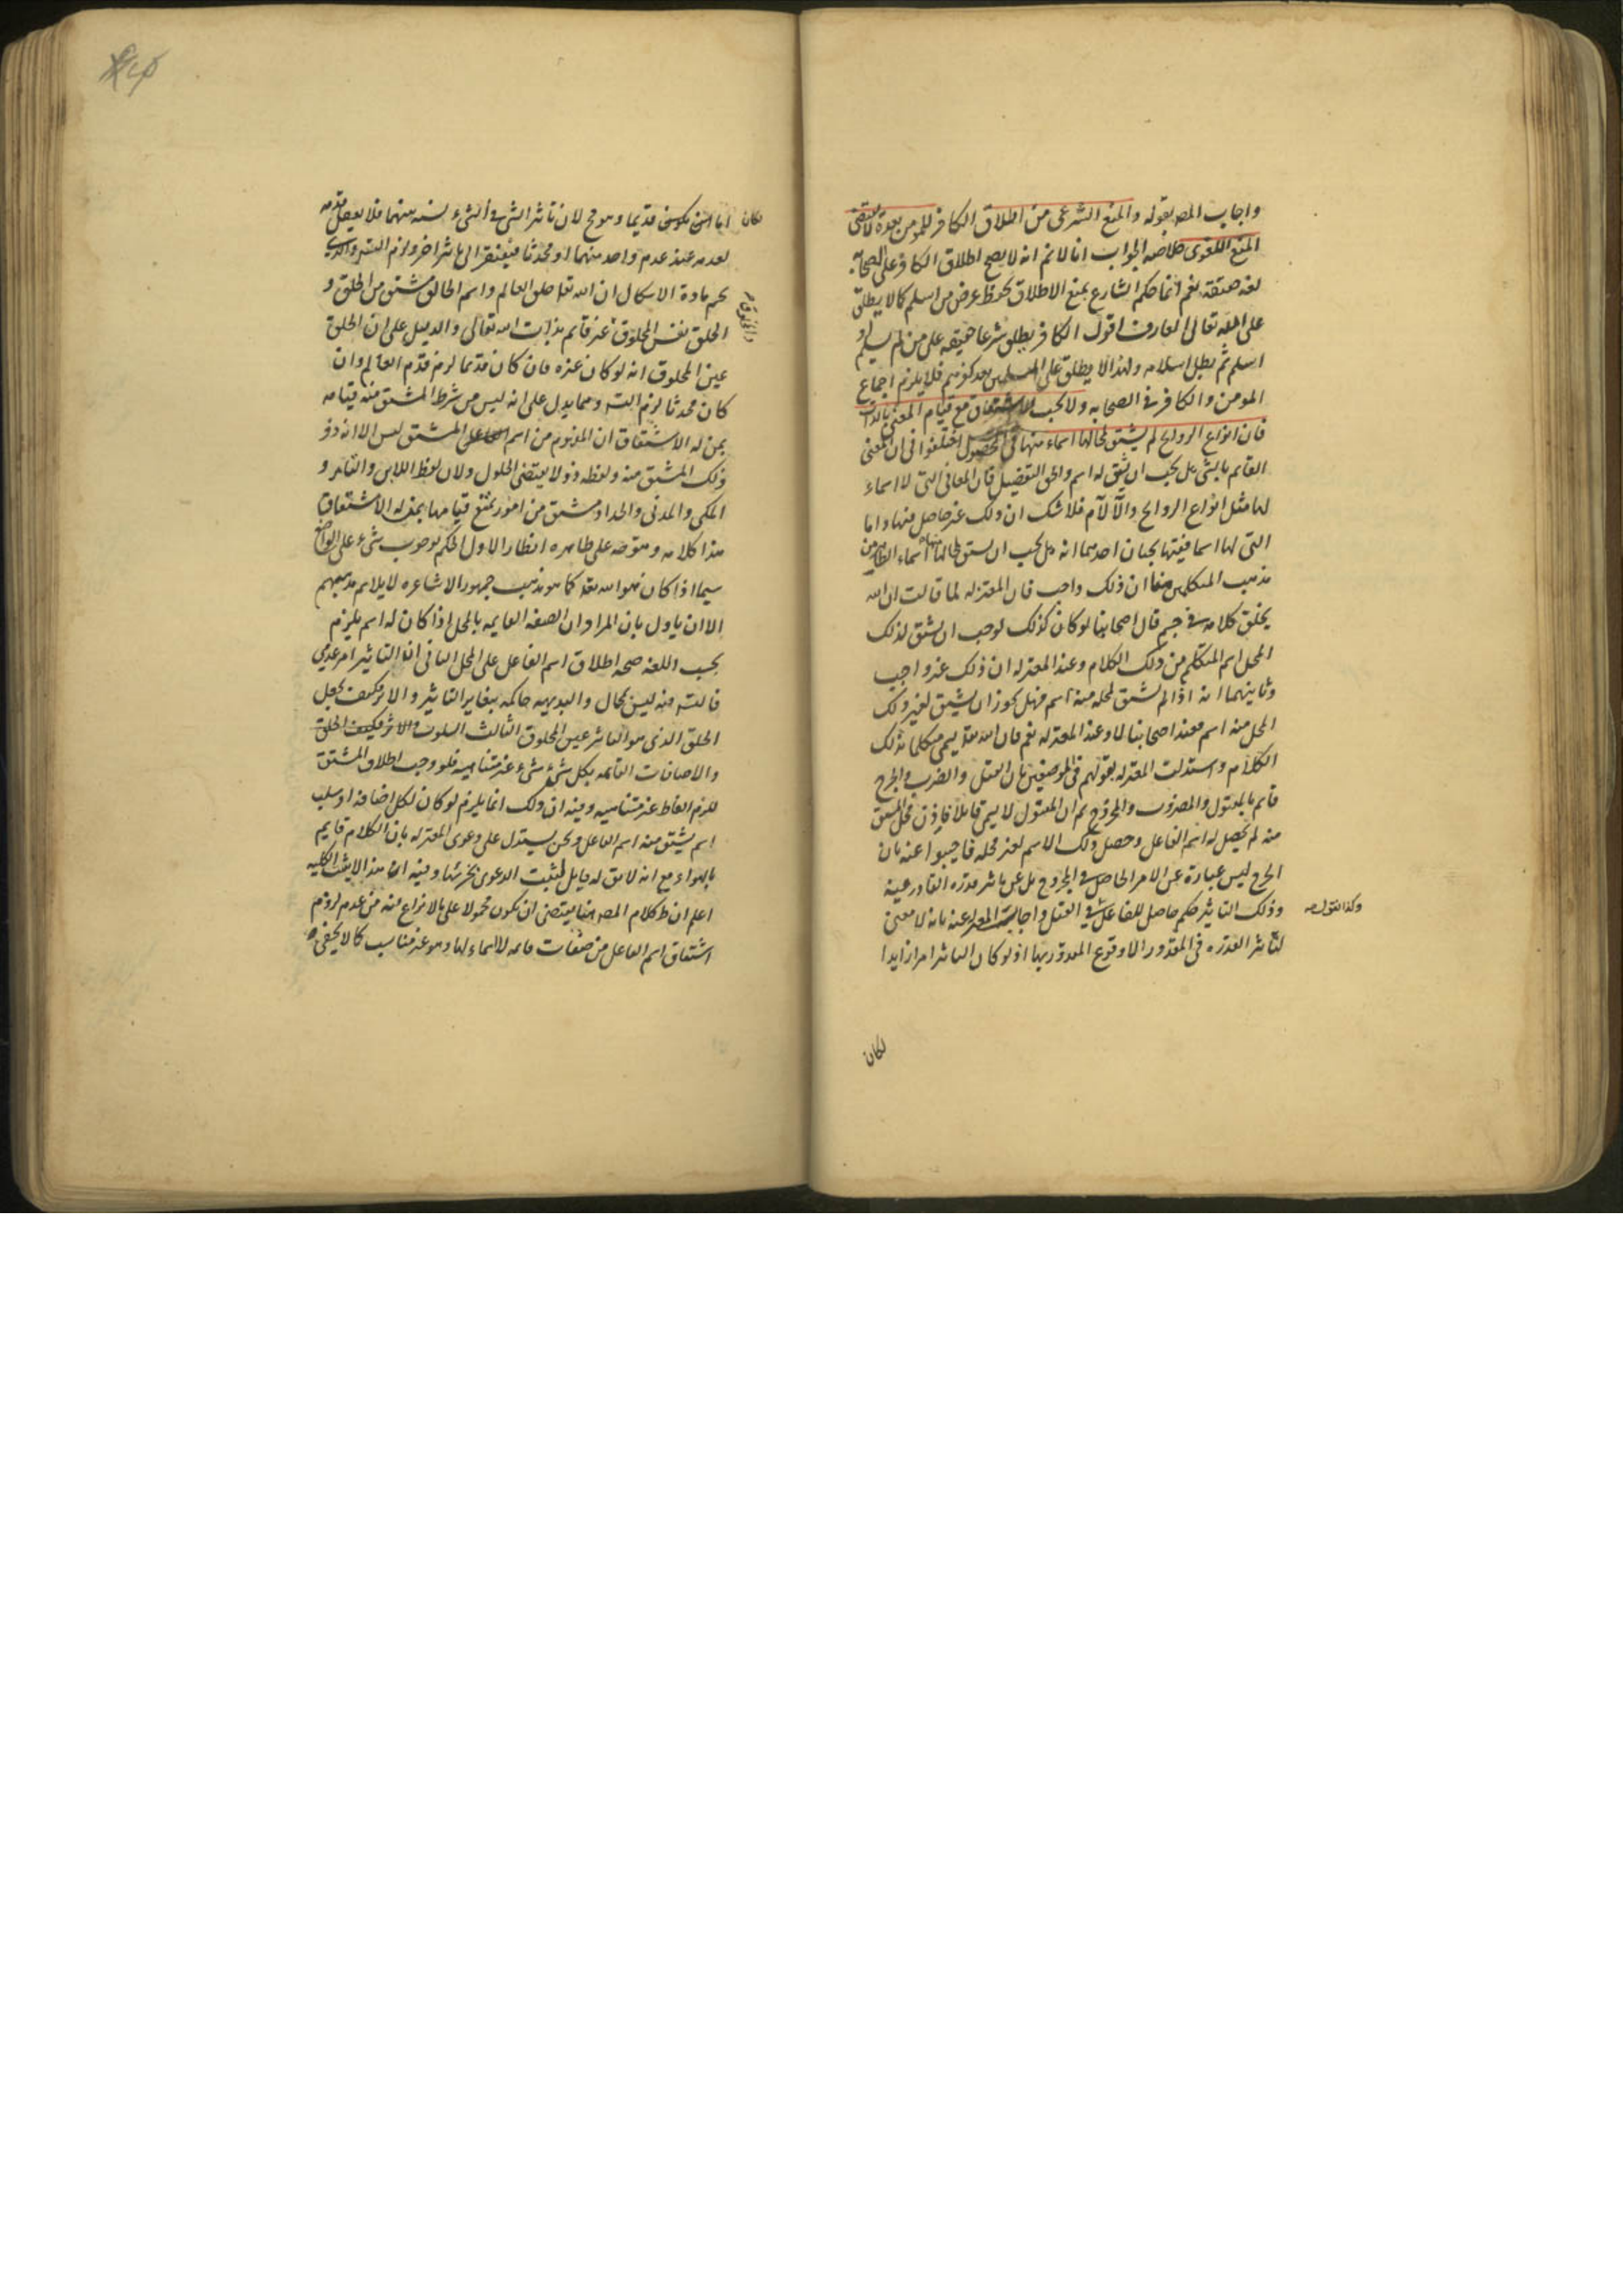 واجاب المصر بقوله والمنع الشرعى من اطلاق الكافر للمومن بعده لا يقتضى
المنع اللغوى خلاصه الجواب انا لا نم انه لا يصح اطلاق الكافر على الصحابة
لغه حقيقة نعم انما حكم الشارع بمنع الاطلاق لحفظ عرض من اسلم كما لا يطلق
على الله تعالى العارف اقول الكافر يطلق شرعا حقيقه على من لم يسلم او
اسلم ثم بطل اسلامه ولهذا لا يطلق على المسلمين بعد كفرهم فلا يلزم اجماع
المومن والكافر فى الصحابه ولا يجب الاشتقاق مع قيام المعنى بالذات
فان انواع الروايح لم يشتق لمحالها اسماء منها فى المحصول اختلفوا فى ان المعنى
القائم بالشى هل يجب ان يشتق له اسم والحق التفضيل فان المعانى التى لا اسماء
لها مثل انواع الروايح والآلام فلا شك ان ذلك غير حاصل فيها واما
التى لها اسما ففيها بحثان احدهما انه هل يجب ان يشتق لمحالها منها اسماء الظاهر من
مذهب المتكلمين منا ان ذلك واجب فان المعتزله لما قالت ان الله
يخلق كلامه فى جسم قال اصحابنا لو كان كذلك لوجب ان يشتق لذلك
المحل اسم المتكلم من ذلك الكلام وعند المعتزله ان ذلك غير واجب
وثانيهما انه اذا لم يشتق لمحله منه اسم فهل يجوز ان يشتق لغير ذلك
المحل منه اسم فعند اصحابنا لا وعند المعتزله نعم فان الله تعه يسمى متكلما بذلك
الكلام واستدلت المعتزله بقولهم فى الموضعين بان القتل والضرب والجرح
قائم بالمقتول والمضروب والمجروح ثم ان المقتول لا يسمى قاتلا فاذن محل المشتق
منه لم يحصل له اسم الفاعل وحصل ذلك الاسم لغير محله فاجيبوا عنه بان
الجرح ليس عبارة عن الامر الحاصل فى المجروح بل عن تاثير قدره القادر فيه
وذلك التاثير حكم حاصل للفاعل فى القتل واجابت المعتزله عنه بانه لا معنى
وكذا القول صه
لتاثير القدره فى المقدور الا وقوع المقدور بها اذ لو كان التاثير امرا زايدا
لكان
لكان اما ان يكون قديما وهو مح لان تاثير الشى فى الشىء نسبه بينهما فلا يعقل قدمه
لعدمه عند عدم واحد منهما او محدثا فيفتقر الى تاثير اخر ولزم التسه والذى
يحسم مادة الاشكال ان الله تعا خلق العالم واسم الخالق مشتق من الخلق و
الخلق نفس المخلوق غير قائم بذات الله تعالى والدليل على ان الخلق
عين المخلوق انه لو كان غيره فان كان قديما لزم قدم العالم وان
كان محدثا لزم التسه ومما يدل على انه ليس من شرط المشتق منه قيامه
بمن له الاشتقاق ان المفهوم من اسم المشتق ليس الا انه ذو
ذلك المشتق منه ولفظه ذو لا يقتضى الحلول ولان لفظ اللابن والتامر و
المكى والمدنى والحداد مشتق من امور يمتنع قيامها بمن له الاشتقاق
هذا كلامه ويتوجه على ظاهره انظار الاول الحكم بوجوب شىء على الواضع
سيما اذا كان هو الله تعه كما هو مذهب جمهور الاشاعره لا يلايم مذهبهم
الا ان ياول بان المراد ان الصفه القايمه بالمحل اذا كان له اسم يلزم
بحسب اللغه صحه اطلاق اسم الفاعل على المحل الثانى ان التاثير امر عدمى
فالتسه فيه ليس بمحال والبديهيه حاكمه بتغاير التاثير والاثر فكيف يجعل
الخلق الذى هو التاثير عين المخلوق الثالث السلوب
والاضافات القائمه بكل شىء شىء غير متناهيه فلو وجب اطلاق المشتق
للزم الفاظ غير متناهيه وفيه ان ذلك انما يلزم لو كان لكل اضافه او سلب
اسم يشتق منه اسم الفاعل ونحن يستدل على دعوى المعتزله بان الكلام قايم
بالهواء مع انه لا يق له قايل فيثبت الدعوى بجزئيها وفيه ان هذا لا يثبت الكليه
اعلم ان ظ كلام المصر هنا يقتضى ان يكون محمولا على بالانزاع فيه من عدم لزوم
اشتقاق اسم الفاعل من صفات قائمه لا اسماء لها وهو غير مناسب كما لا يخفى